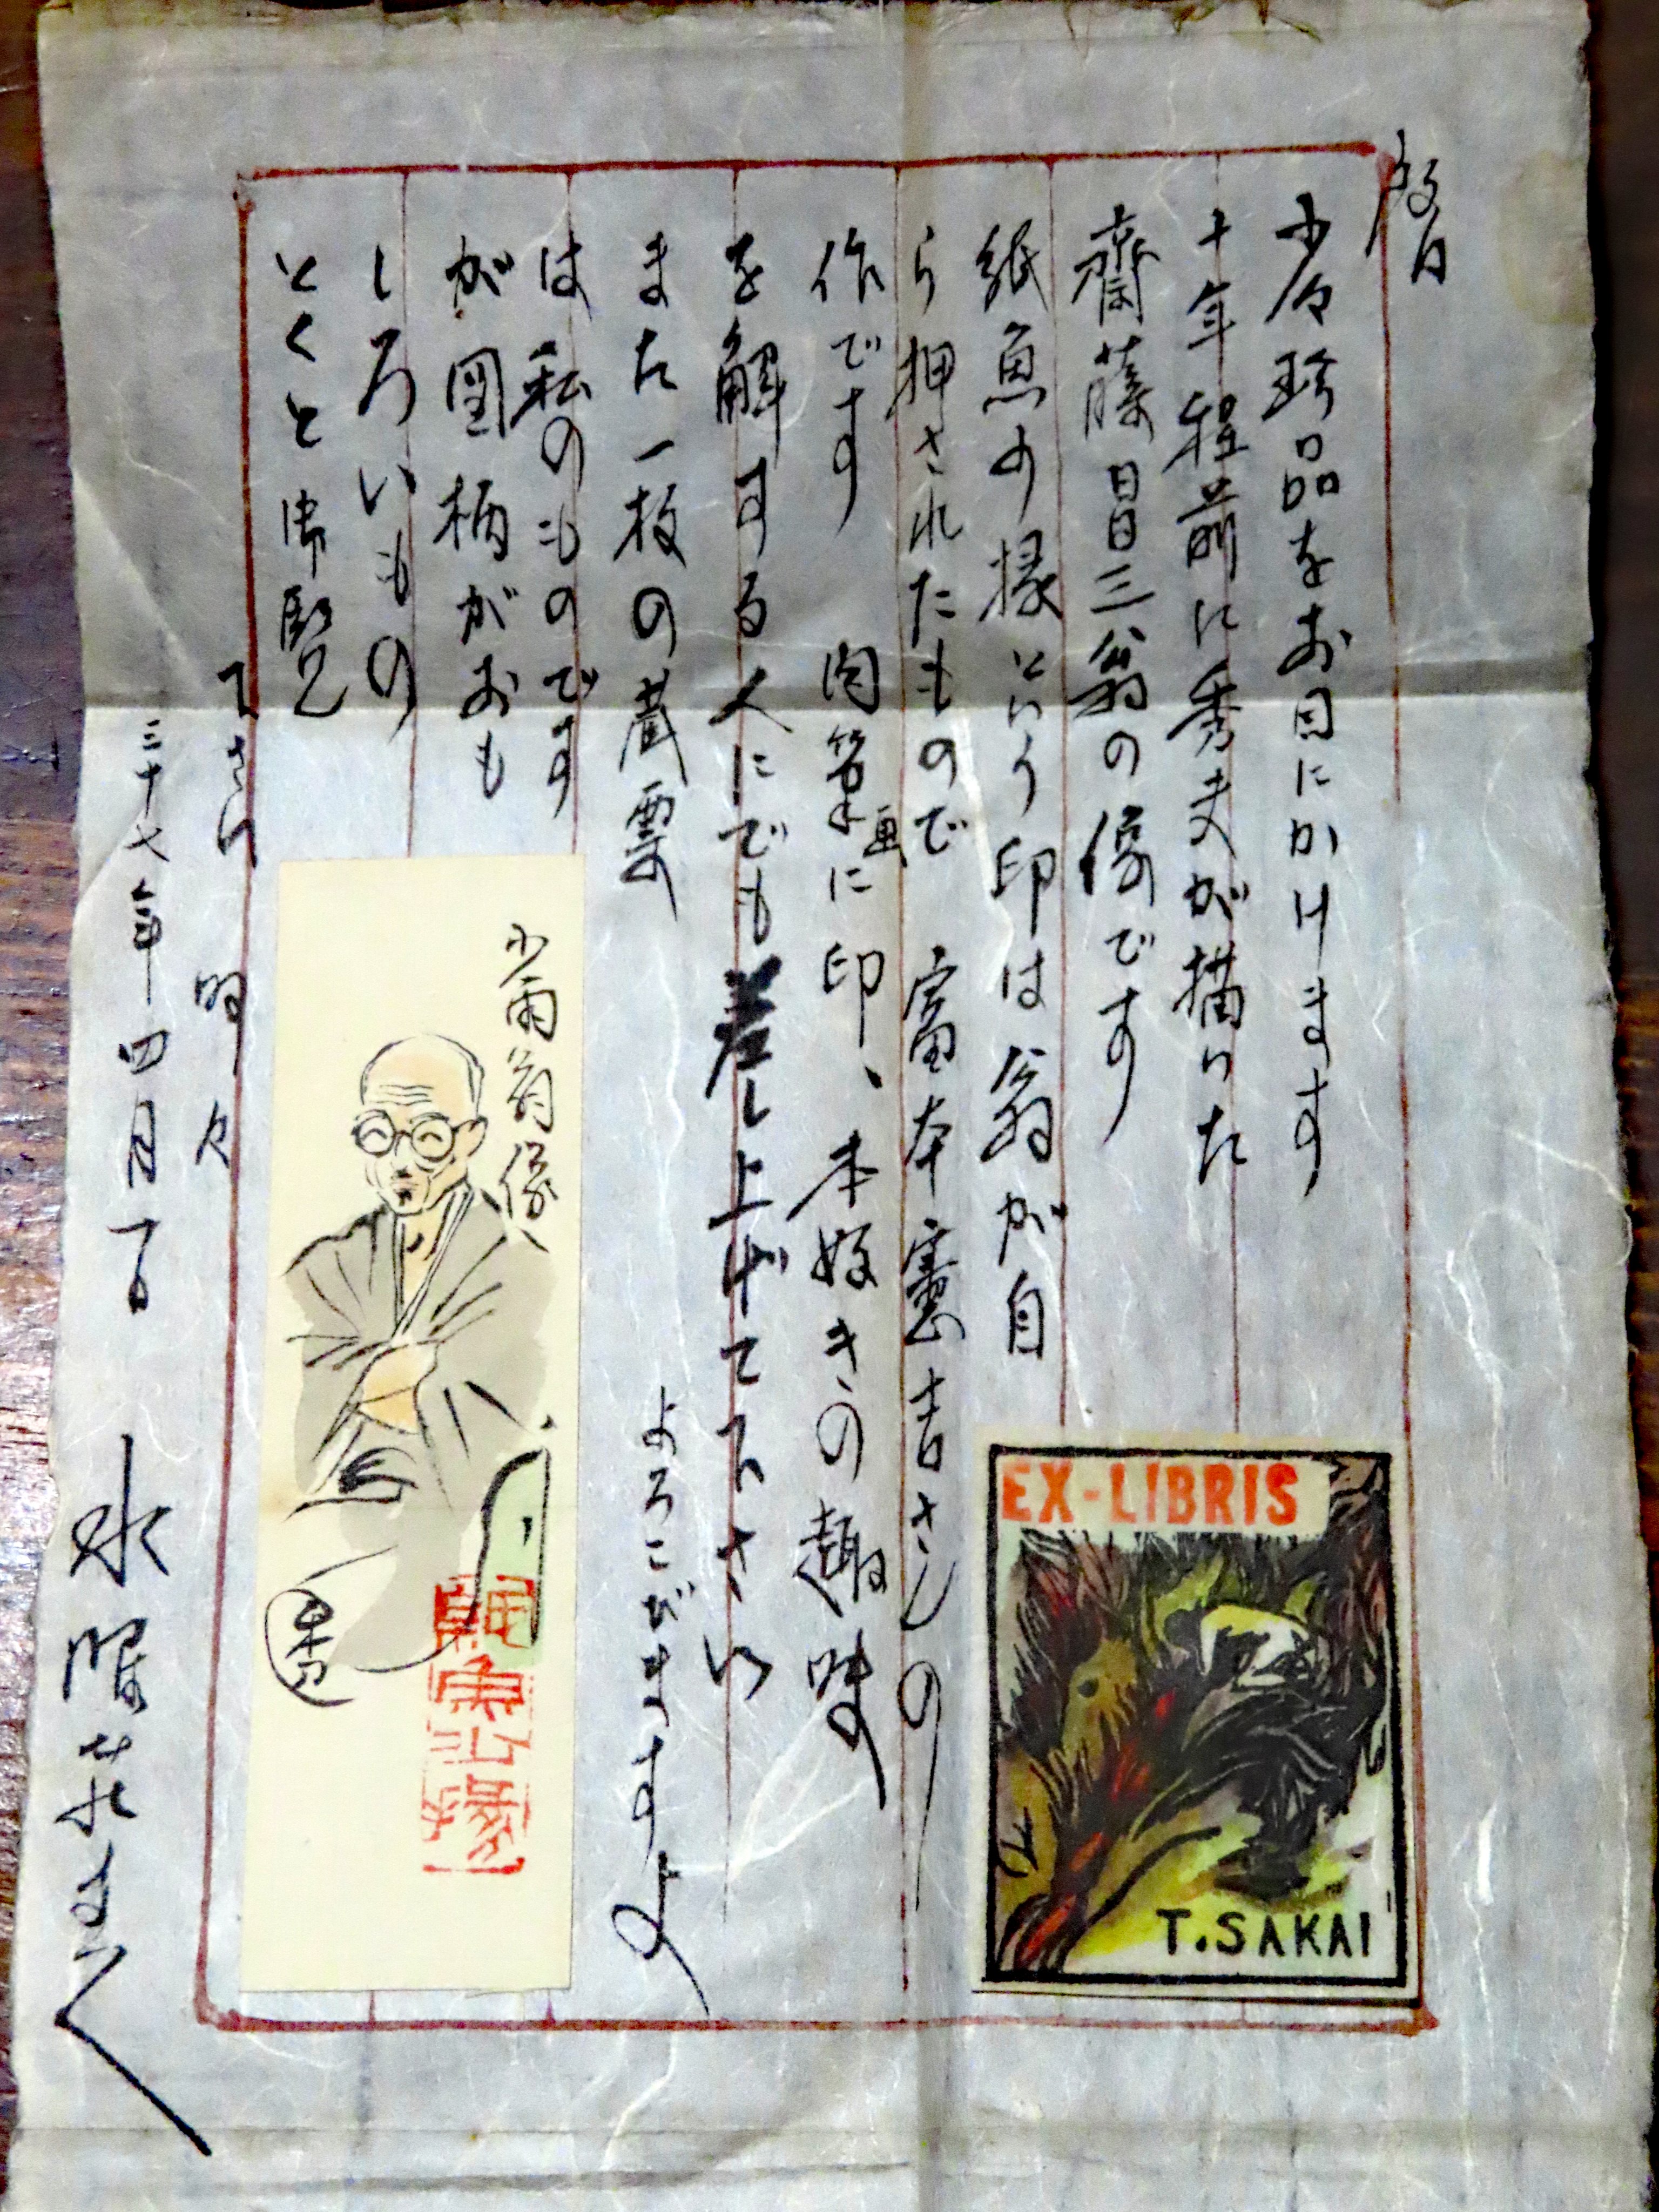 少々珍品をお目にかけます
十年程前に秀夫が描いた
齋藤昌三翁の像です
紙魚の様という印は翁が自
ら押されたもので 富本憲吉さんの
作です 肉筆画に印、本好きの趣味
を解する人にでも差し上げて下さい
よろこびますよ
また一枚の蔵票
は私のものです
が図柄がおも
しろいもの
とくと御覧
下さい
三十七年四月
少雨翁像
EX-LIBRIS
T.SAKAI